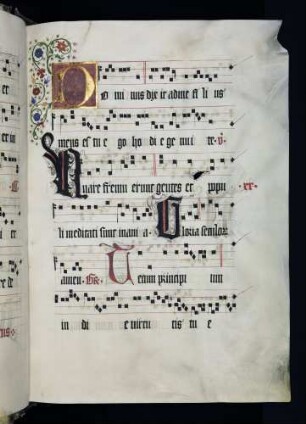 Do mi nus dix it ad me fi li us
meus es tu e go ho di e ge nui te. V.
Quare fremu erunt gentes et popu
li meditati sunt inani a. Gloria seculor
amen. GR. Tecum principi um
in di e virtu tis tu e